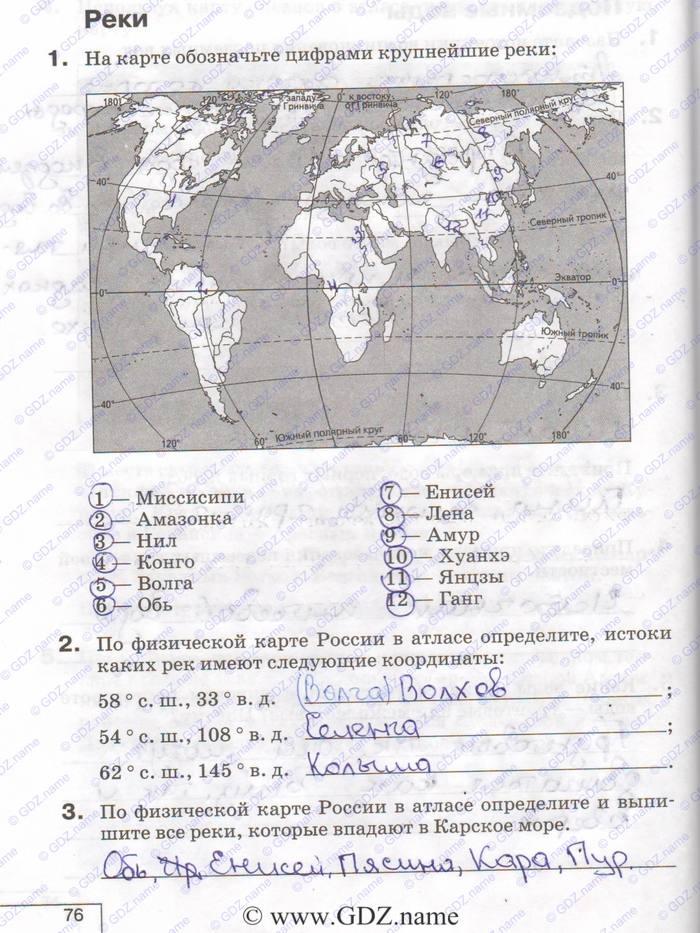 Реки
1. На карте обозначьте цифрами крупнейшие реки:
180 120° к западу от Гринвича 0° к востоку от Гринвича 120° 180°
Северный полярный круг
40° 40°
Северный тропик
Экватор
0° 0°
Южный тропик
40° 40°
Южный полярный круг
120° 60° 0° 60° 120° 180°
1 — Миссисипи
2 — Амазонка
3 — Нил
4 — Конго
5 — Волга
6 — Обь
7 — Енисей
8 — Лена
9 — Амур
10 — Хуанхэ
11 — Янцзы
12 — Ганг
2. По физической карте России в атласе определите, истоки
каких рек имеют следующие координаты:
58° с. ш., 33° в. д. (Волга) Волхов ;
54° с. ш., 108° в. д. Селенга ;
62° с. ш., 145° в. д. Колыма .
3. По физической карте России в атласе определите и выпи-
шите все реки, которые впадают в Карское море.
Обь, Чр, Енисей, Пясина, Кара, Пур.
76
© www.GDZ.name